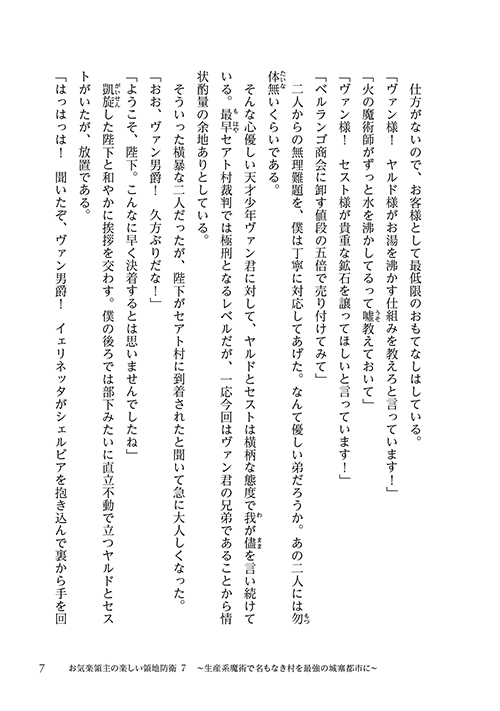 仕方がないので、お客様として最低限のおもてなしはしている。
「ヴァン様！　ヤルド様がお湯を沸かす仕組みを教えろと言っています！」
「火の魔術師がずっと水を沸かしてるって嘘教えておいて」
「ヴァン様！　セスト様が貴重な鉱石を譲ってほしいと言っています！」
「ベルランゴ商会に卸す値段の五倍で売り付けてみて」
二人からの無理難題を、僕は丁寧に対応してあげた。なんて優しい弟だろうか。あの二人には勿
体無いくらいである。
そんな心優しい天才少年ヴァン君に対して、ヤルドとセストは横柄な態度で我が儘を言い続けて
いる。最早セアト村裁判では極刑となるレベルだが、一応今回はヴァン君の兄弟であることから情
状酌量の余地ありとしている。
そういった横暴な二人だったが、陛下がセアト村に到着されたと聞いて急に大人しくなった。
「おお、ヴァン男爵！　久方ぶりだな！」
「ようこそ、陛下。こんなに早く決着するとは思いませんでしたね」
凱旋した陛下と和やかに挨拶を交わす。僕の後ろでは部下みたいに直立不動で立つヤルドとセス
トがいたが、放置である。
「はっはっは！　聞いたぞ、ヴァン男爵！　イェリネッタがシェルビアを抱き込んで裏から手を回
7　お気楽領主の楽しい領地防衛 7　～生産系魔術で名もなき村を最強の城塞都市に～